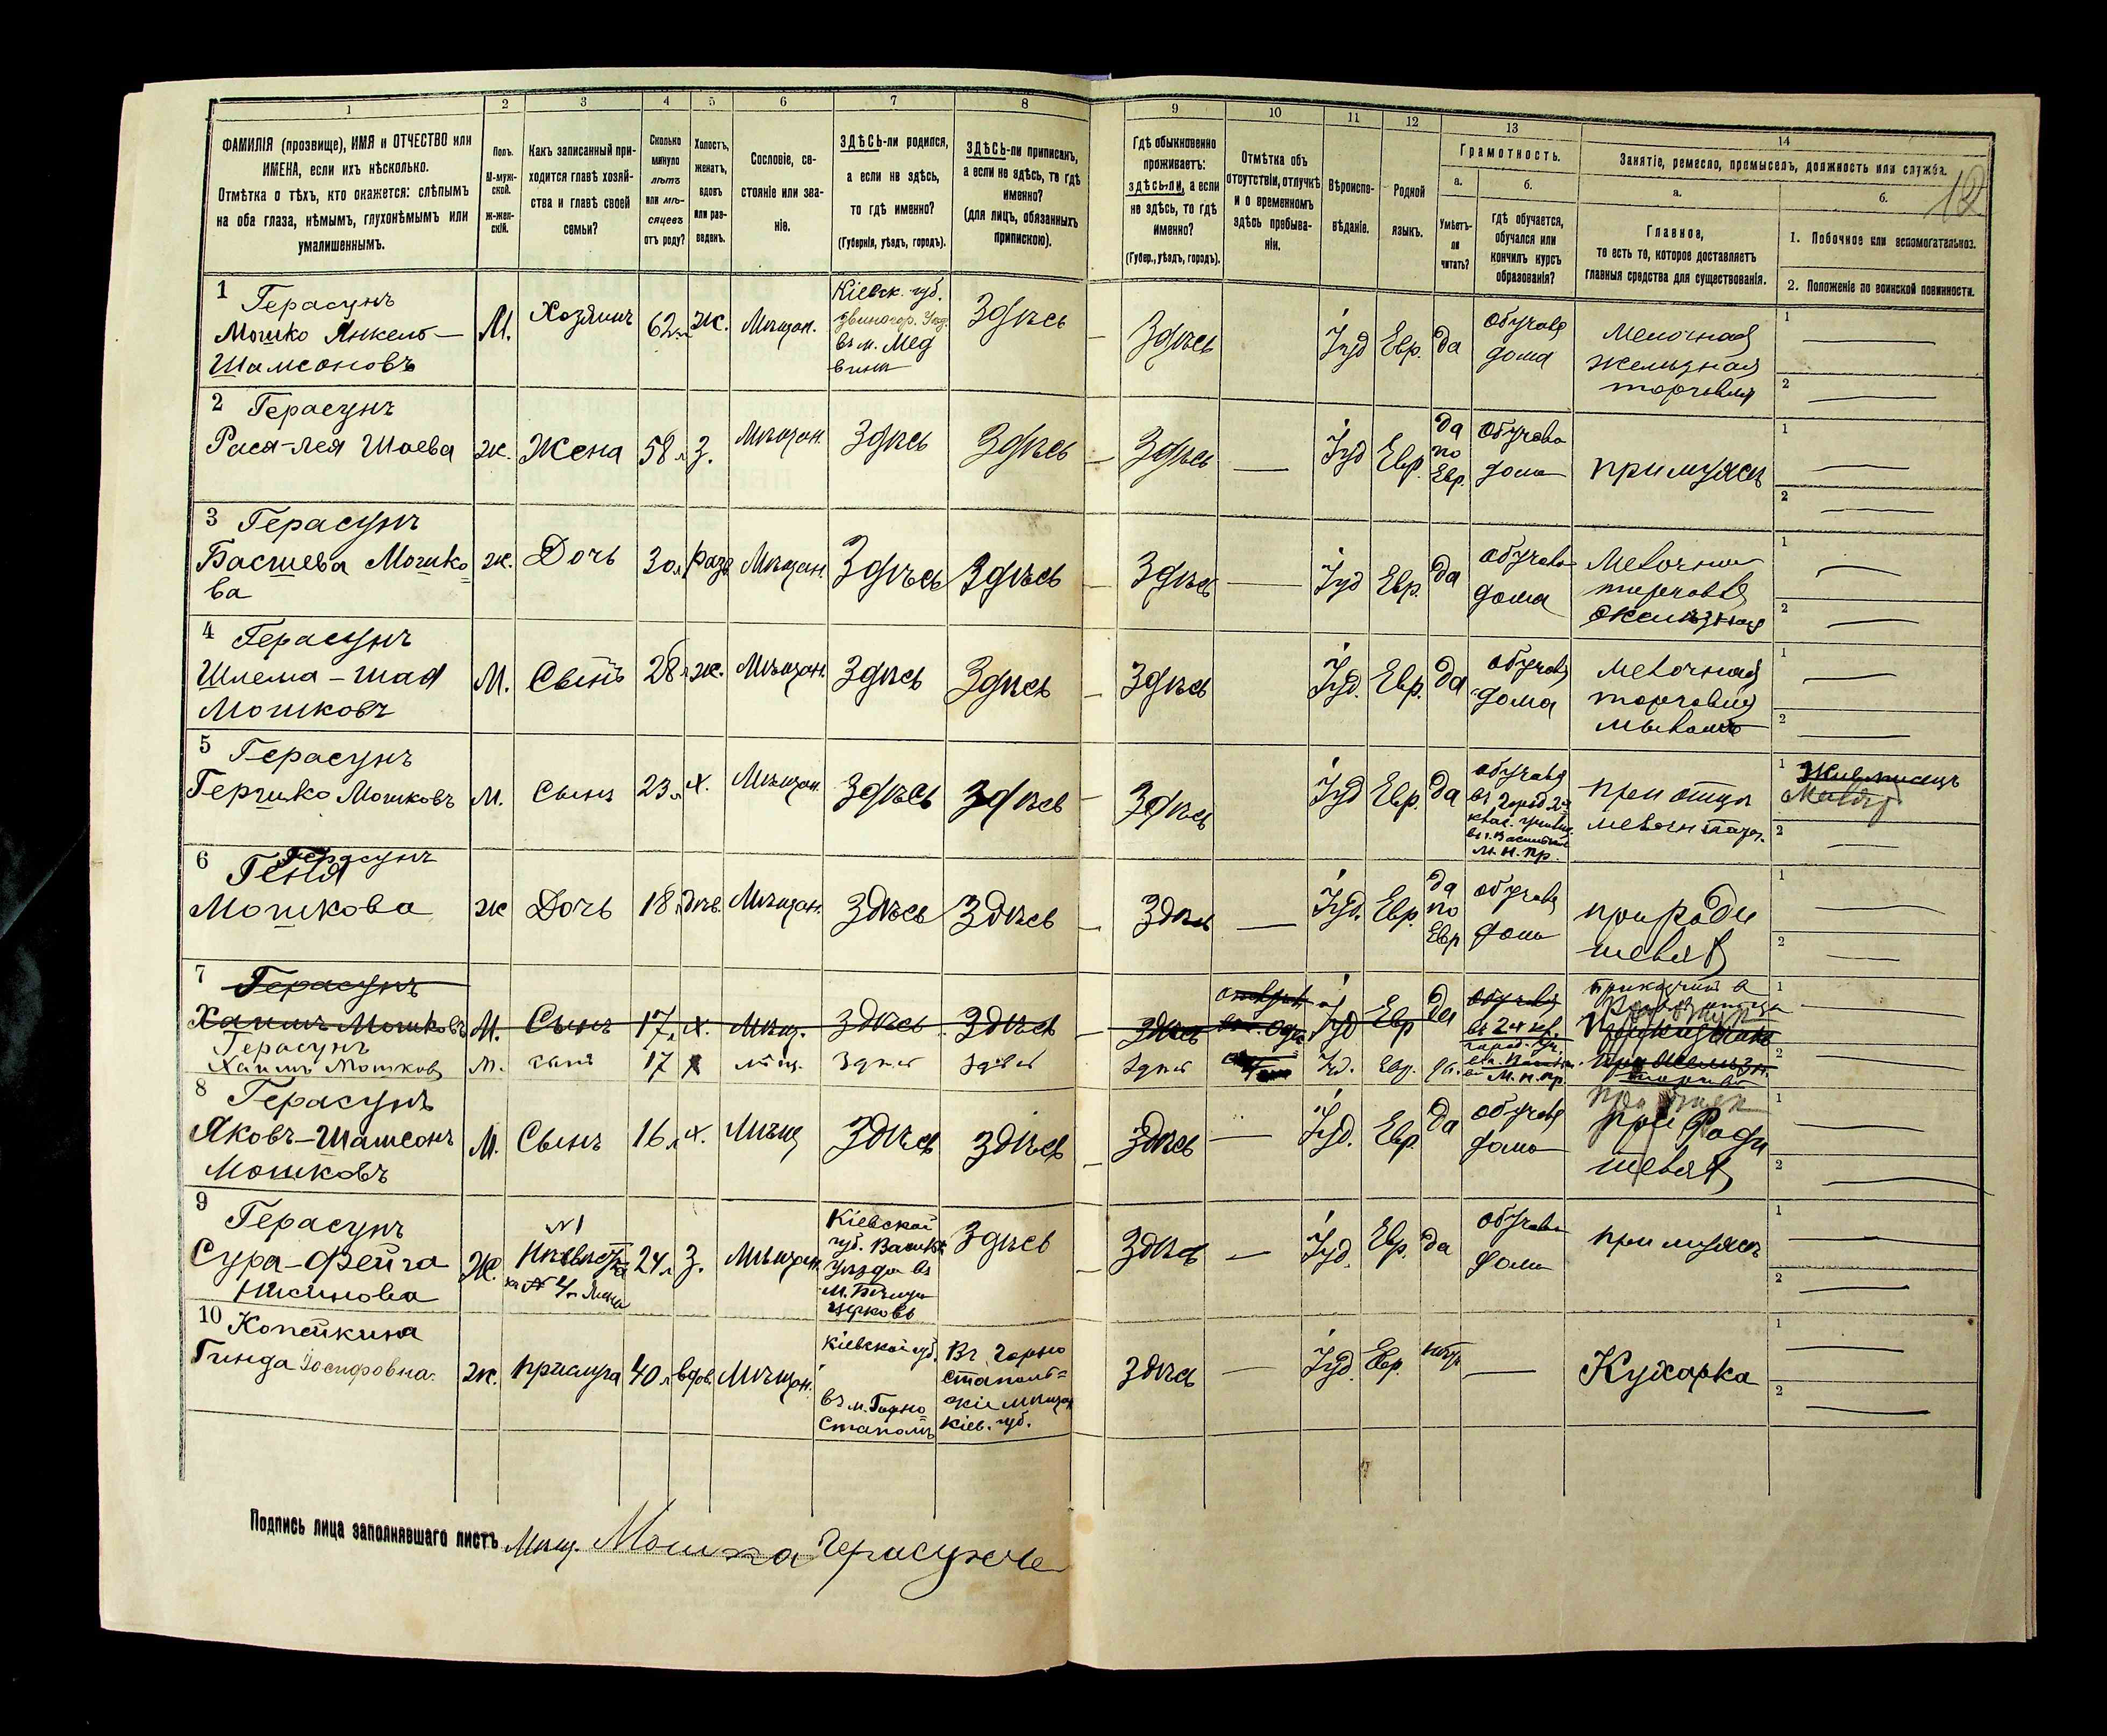 1 2 3 4 5 6 7 8 9 10 11 12 13 14
ФАМИЛІЯ (прозвище), ИМЯ и ОТЧЕСТВО или
ИМЕНА, если ихъ нѣсколько.
Отмѣтка о тѣхъ, кто окажется: слѣпымъ
на оба глаза, нѣмымъ, глухонѣмымъ или
умалишеннымъ.
Полъ.
М-муж-
ской.
ж-жен-
скій.
Какъ записанный при-
ходится главѣ хозяй-
ства и главѣ своей
семьи?
Сколько
минуло
лѣтъ
или мѣ-
сяцевъ
отъ роду?
Холостъ,
женатъ,
вдовъ
или раз-
веденъ.
Сословіе, со-
стояніе или зва-
ніе.
ЗДѢСЬ-ли родился,
а если не здѣсь,
то гдѣ именно?
(Губернія, уѣздъ, городъ).
ЗДѢСЬ-ли приписанъ,
а если не здѣсь, то гдѣ
именно?
(для лицъ, обязанныхъ
припискою).
Гдѣ обыкновенно
проживаетъ:
здѣсь-ли, а если
не здѣсь, то гдѣ
именно?
(Губер., уѣздъ, городъ).
Отмѣтка объ
отсутствіи, отлучкѣ
и о временномъ
здѣсь пребыва-
ніи.
Вѣроиспо-
вѣданіе.
Родной
языкъ.
Грамотность.
а.
Умѣетъ-
ли
читать?
б.
Гдѣ обучается,
обучался или
кончилъ курсъ
образованія?
Занятіе, ремесло, промыселъ, должность или служба.
12
а.
Главное,
то есть то, которое доставляетъ
главныя средства для существованія.
б.
1. Побочное или вспомогательное.
2. Положеніе по воинской повинности.
1 Герасунъ
Мошко Янкель-
Шамсоновъ
М.
Хозяинъ
62 л
ж.
Мѣщан.
Кіевск. губ.
Звеногор. Уѣз.
въ м. Мед
винѣ
Здѣсь
Здѣсь
Іуд
Евр.
да
обучался
дома
Мелочная
желѣзная
торговля
1
2
2 Герасунъ
Рася-Лея Шаева
ж.
Жена
58 л
З.
Мѣщан.
Здѣсь
Здѣсь
Здѣсь
Іуд
Евр.
да
по
Евр.
Обучала
дома
при мужѣ
1
2
3 Герасунъ
Басшева Мошко
ва
ж.
Дочь
30 л
разв
Мѣщан.
Здѣсь
Здѣсь
Здѣсь
Іуд
Евр.
да
обучала
дома
Мелочная
торговля
желѣзная
1
2
4 Герасунъ
Шлема-Шая
Мошковъ
М.
Сынъ
28 л
ж.
Мѣщан.
Здѣсь
Здѣсь
Здѣсь
Іуд.
Евр.
да
обучался
дома
мелочная
торговля
мыломъ
1
2
5 Герасунъ
Гершко Мошковъ
М.
Сынъ
23 л
х.
Мѣщан.
Здѣсь
Здѣсь
Здѣсь
Іуд
Евр.
да
обучался
въ город 2х
М. Н. пр.
при отцѣ
1
2
6 Герасунъ
Геня
Мошкова
ж
Дочь
18 л
Мѣщан.
Здѣсь
Здѣсь
Здѣсь
Іуд.
Евр.
да
по
Евр
обучала
дома
при Роди
телях
1
2
7 Герасунъ
Хаимъ Мошковъ
М.
Сынъ
17 л
х.
Мѣщ.
Здѣсь
Здѣсь
Здѣсь
Іуд
Евр
да
обучался
въ 2хкл.
город. уч.
М. Н. пр.
1
2
Герасунъ
Хаимъ Мошковъ
М.
сынъ
17
х
мѣщ.
Здѣсь
Здѣсь
Здѣсь
Іуд.
Евр.
да.
8 Герасунъ
Яковъ-Шамсонъ
Мошковъ
М.
Сынъ
16 л
х.
Мѣщ
Здѣсь
Здѣсь
Здѣсь
Іуд.
Евр.
да
обучался
дома
при Роди
телях
1
2
9 Герасунъ
Сура-Фейга
Ж.
№1
Невѣстка
24 л
З.
Мѣщан.
Кіевской
губ. Васильк
Уѣзда въ
м. Бѣлая
церковь
Здѣсь
Здѣсь
Іуд.
Евр.
да
обучала
дома
при мужѣ
1
2
10 Копейкина
Гинда Іосифовна.
ж.
прислуга
40 л
вдов.
Мѣщан.
Кіевской губ.
въ м. Горно
Стаполь
Въ Горно
стаполь-
скіе мѣщан
Кіев. губ.
Здѣсь
Іуд.
Евр.
нѣтъ
Кухарка
1
2
Подпись лица заполнявшаго листъ Мѣщ. Мошка Герасунъ